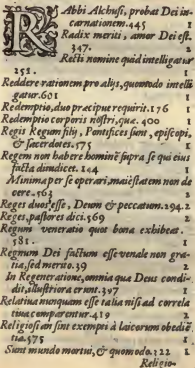 RAbbi Alchusi, probat Dei in-
carnationem. 445
Radix meriti, amor Dei est.
347. 2
Recti nomine quid intelligatur
251. 1
Reddere rationem pro alijs, quomodo intelli
gitur. 601 1
Redemptio, duo præcipue requirit. 176 1
Redemptio corporis nostri, quæ. 400 1
Regis Regum filij, Pontifices sunt, episcopi,
& sacerdotes. 575 1
Regem non habere hominē supra se qui eius
facta diiudicet. 144 1
Minima per se operari, maiestatem non de
cere. 563 2
Reges duos esse, Deum & peccatum. 294. 2
Reges, pastores dici. 569 1
Regum veneratio quot bona exhibeat.
581. 1
Regnum Dei factum esse venale non gra-
tia, sed merito. 39 2
In Regeneratione, omnia quæ Deus condi
dit, illustriora erunt. 397 1
Relatiua nunquam esse talia nisi ad correla
tiua comparentur. 419 2
Religiosi an sint exempti à laicorum obediē
tia. 575 1
Sunt mundo mortui, & quomodo. 122 1
Religio-